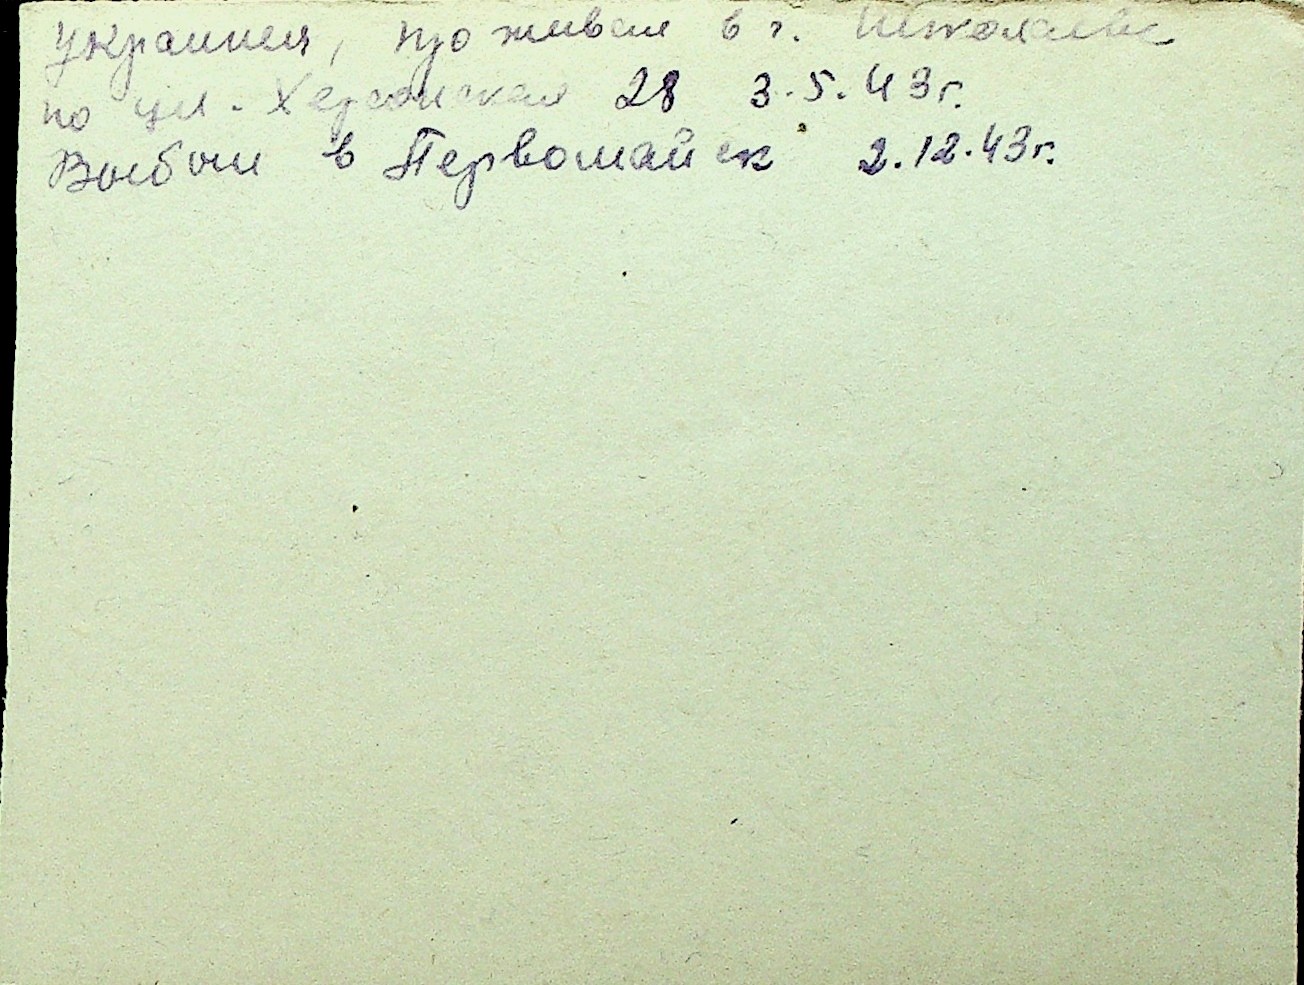 Украинец, проживал в г. Николаеве
по ул. Херсонская 28 3.5.43г.
Выбыл в Первомайск 2.12.43г.